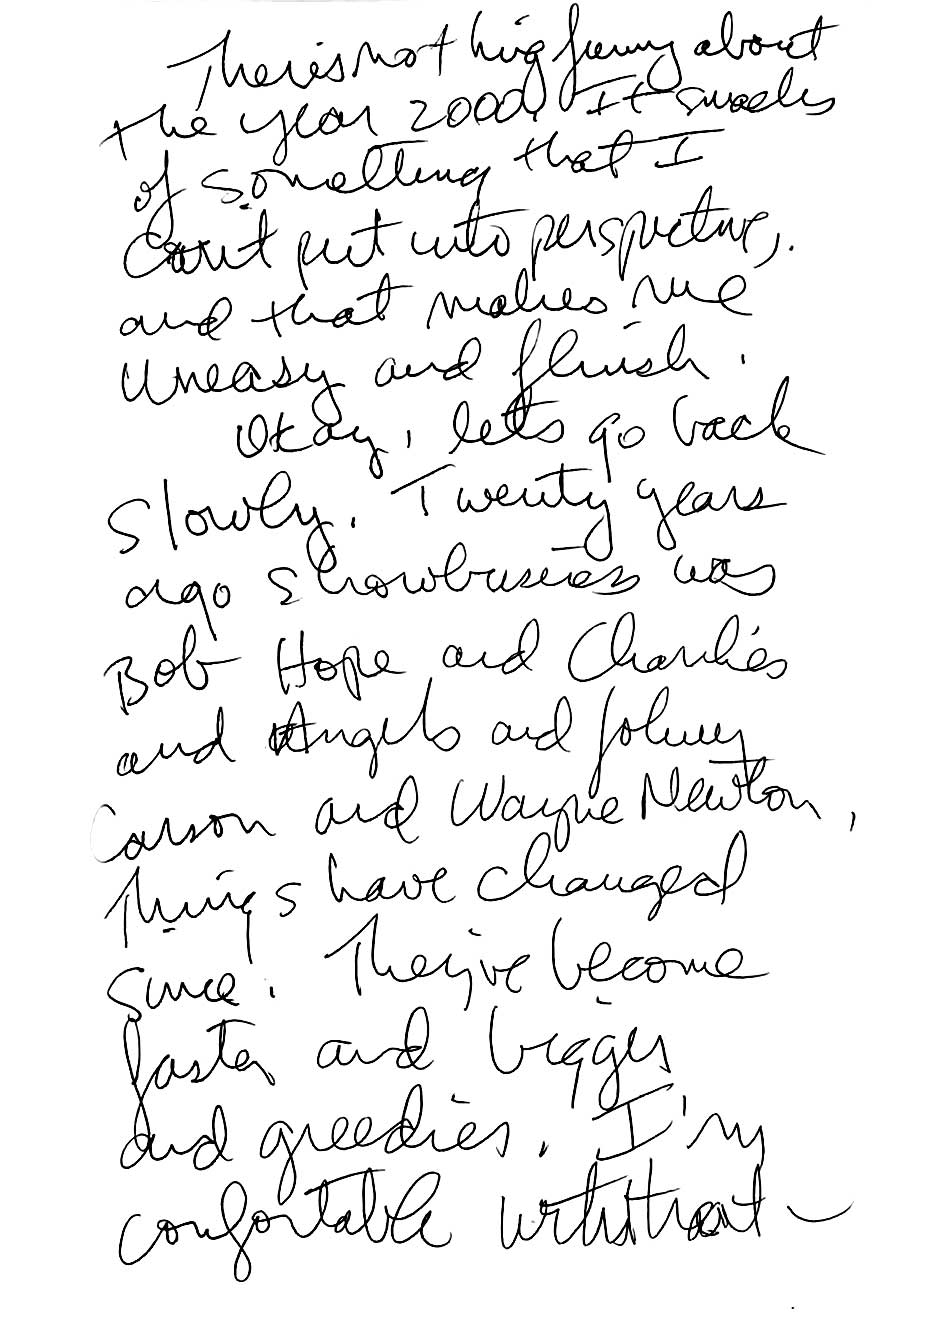 There is nothing funny about
the year 2000. It smacks
of something that I
can't put into perspective,
and that makes me
uneasy and fluish.
Okay, lets go back
slowly. Twenty years
ago showbusiness was
Bob Hope and Charlies
and Angels and Johnny
Carson and Wayne Newton,
Things have changed
since. They've become
faster and bigger
and greedier. I'm
comfortable with that –